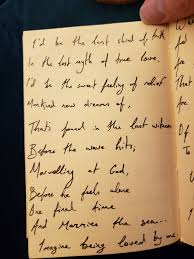 I'd be the last shred of truth
In the lost myth of true love.
I'd be the sweet feeling of relief
Mankind now dreams of,
That's found in the last witness
Before the wave hits;
Marvelling at God,
Before he feels alone
One final time
And Marries the sea...
Imagine being loved by me.